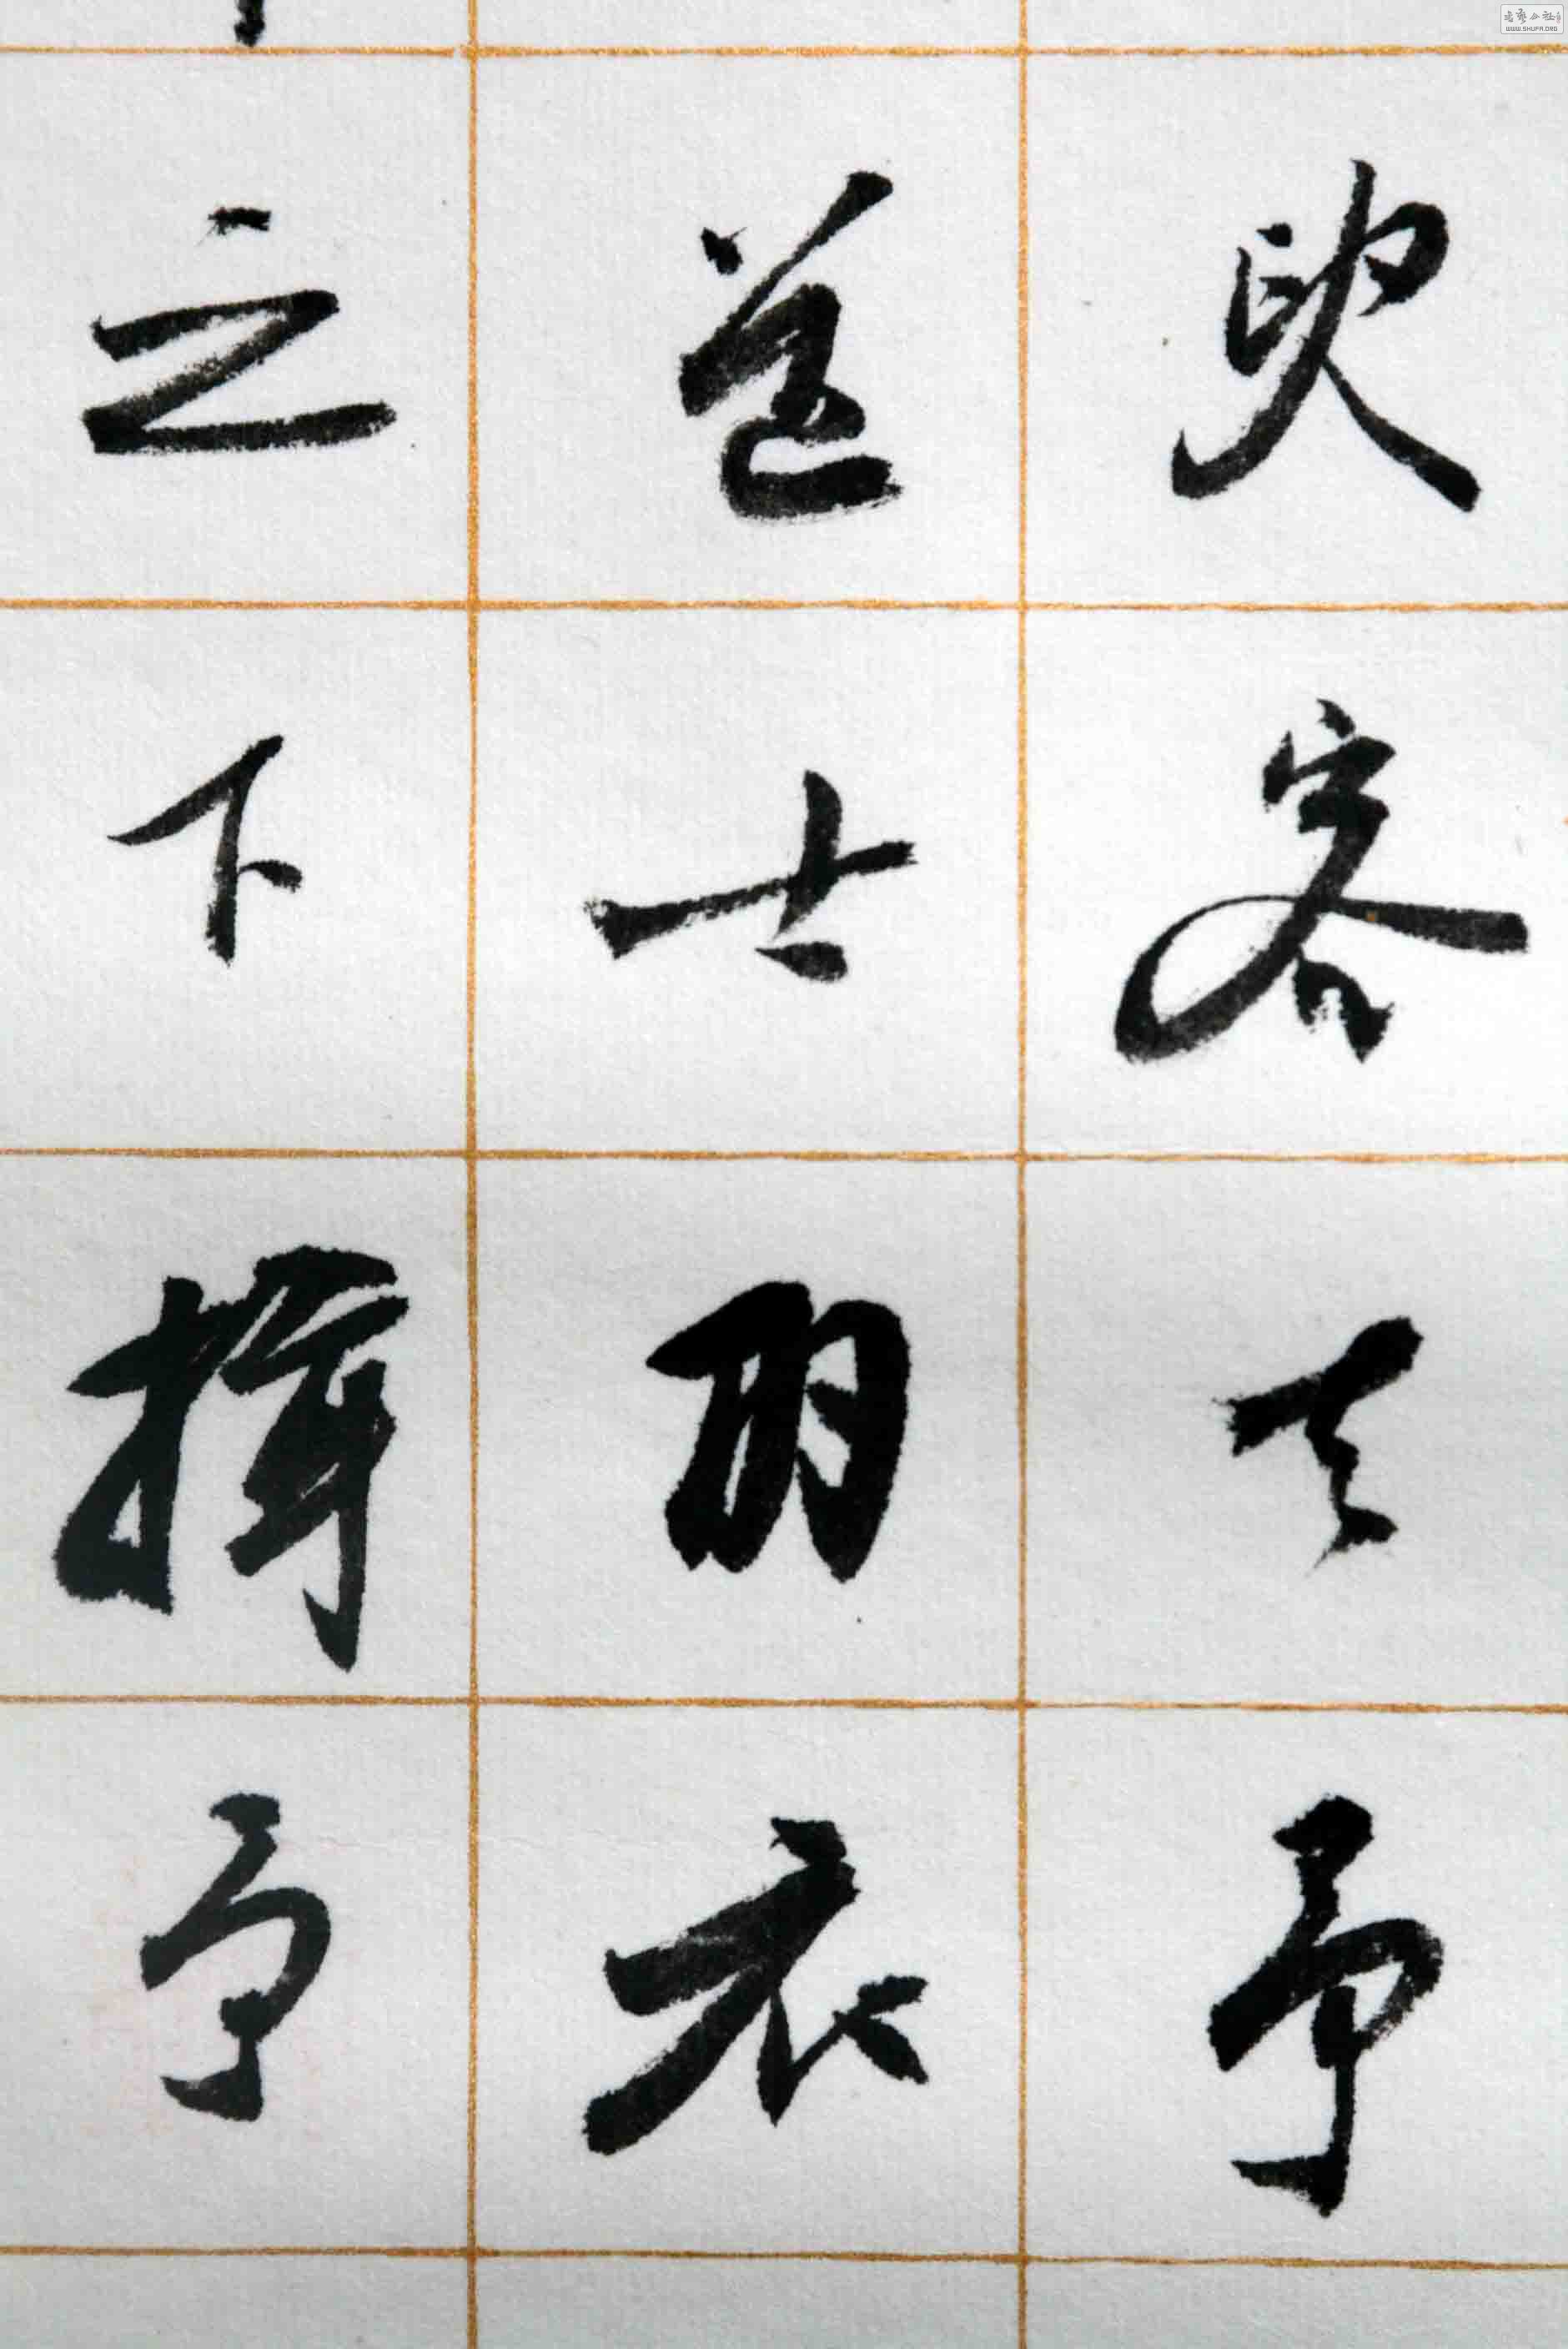 臾客去予
道士羽衣
之下揖予
书艺公社
WWW.SHUFA.ORG